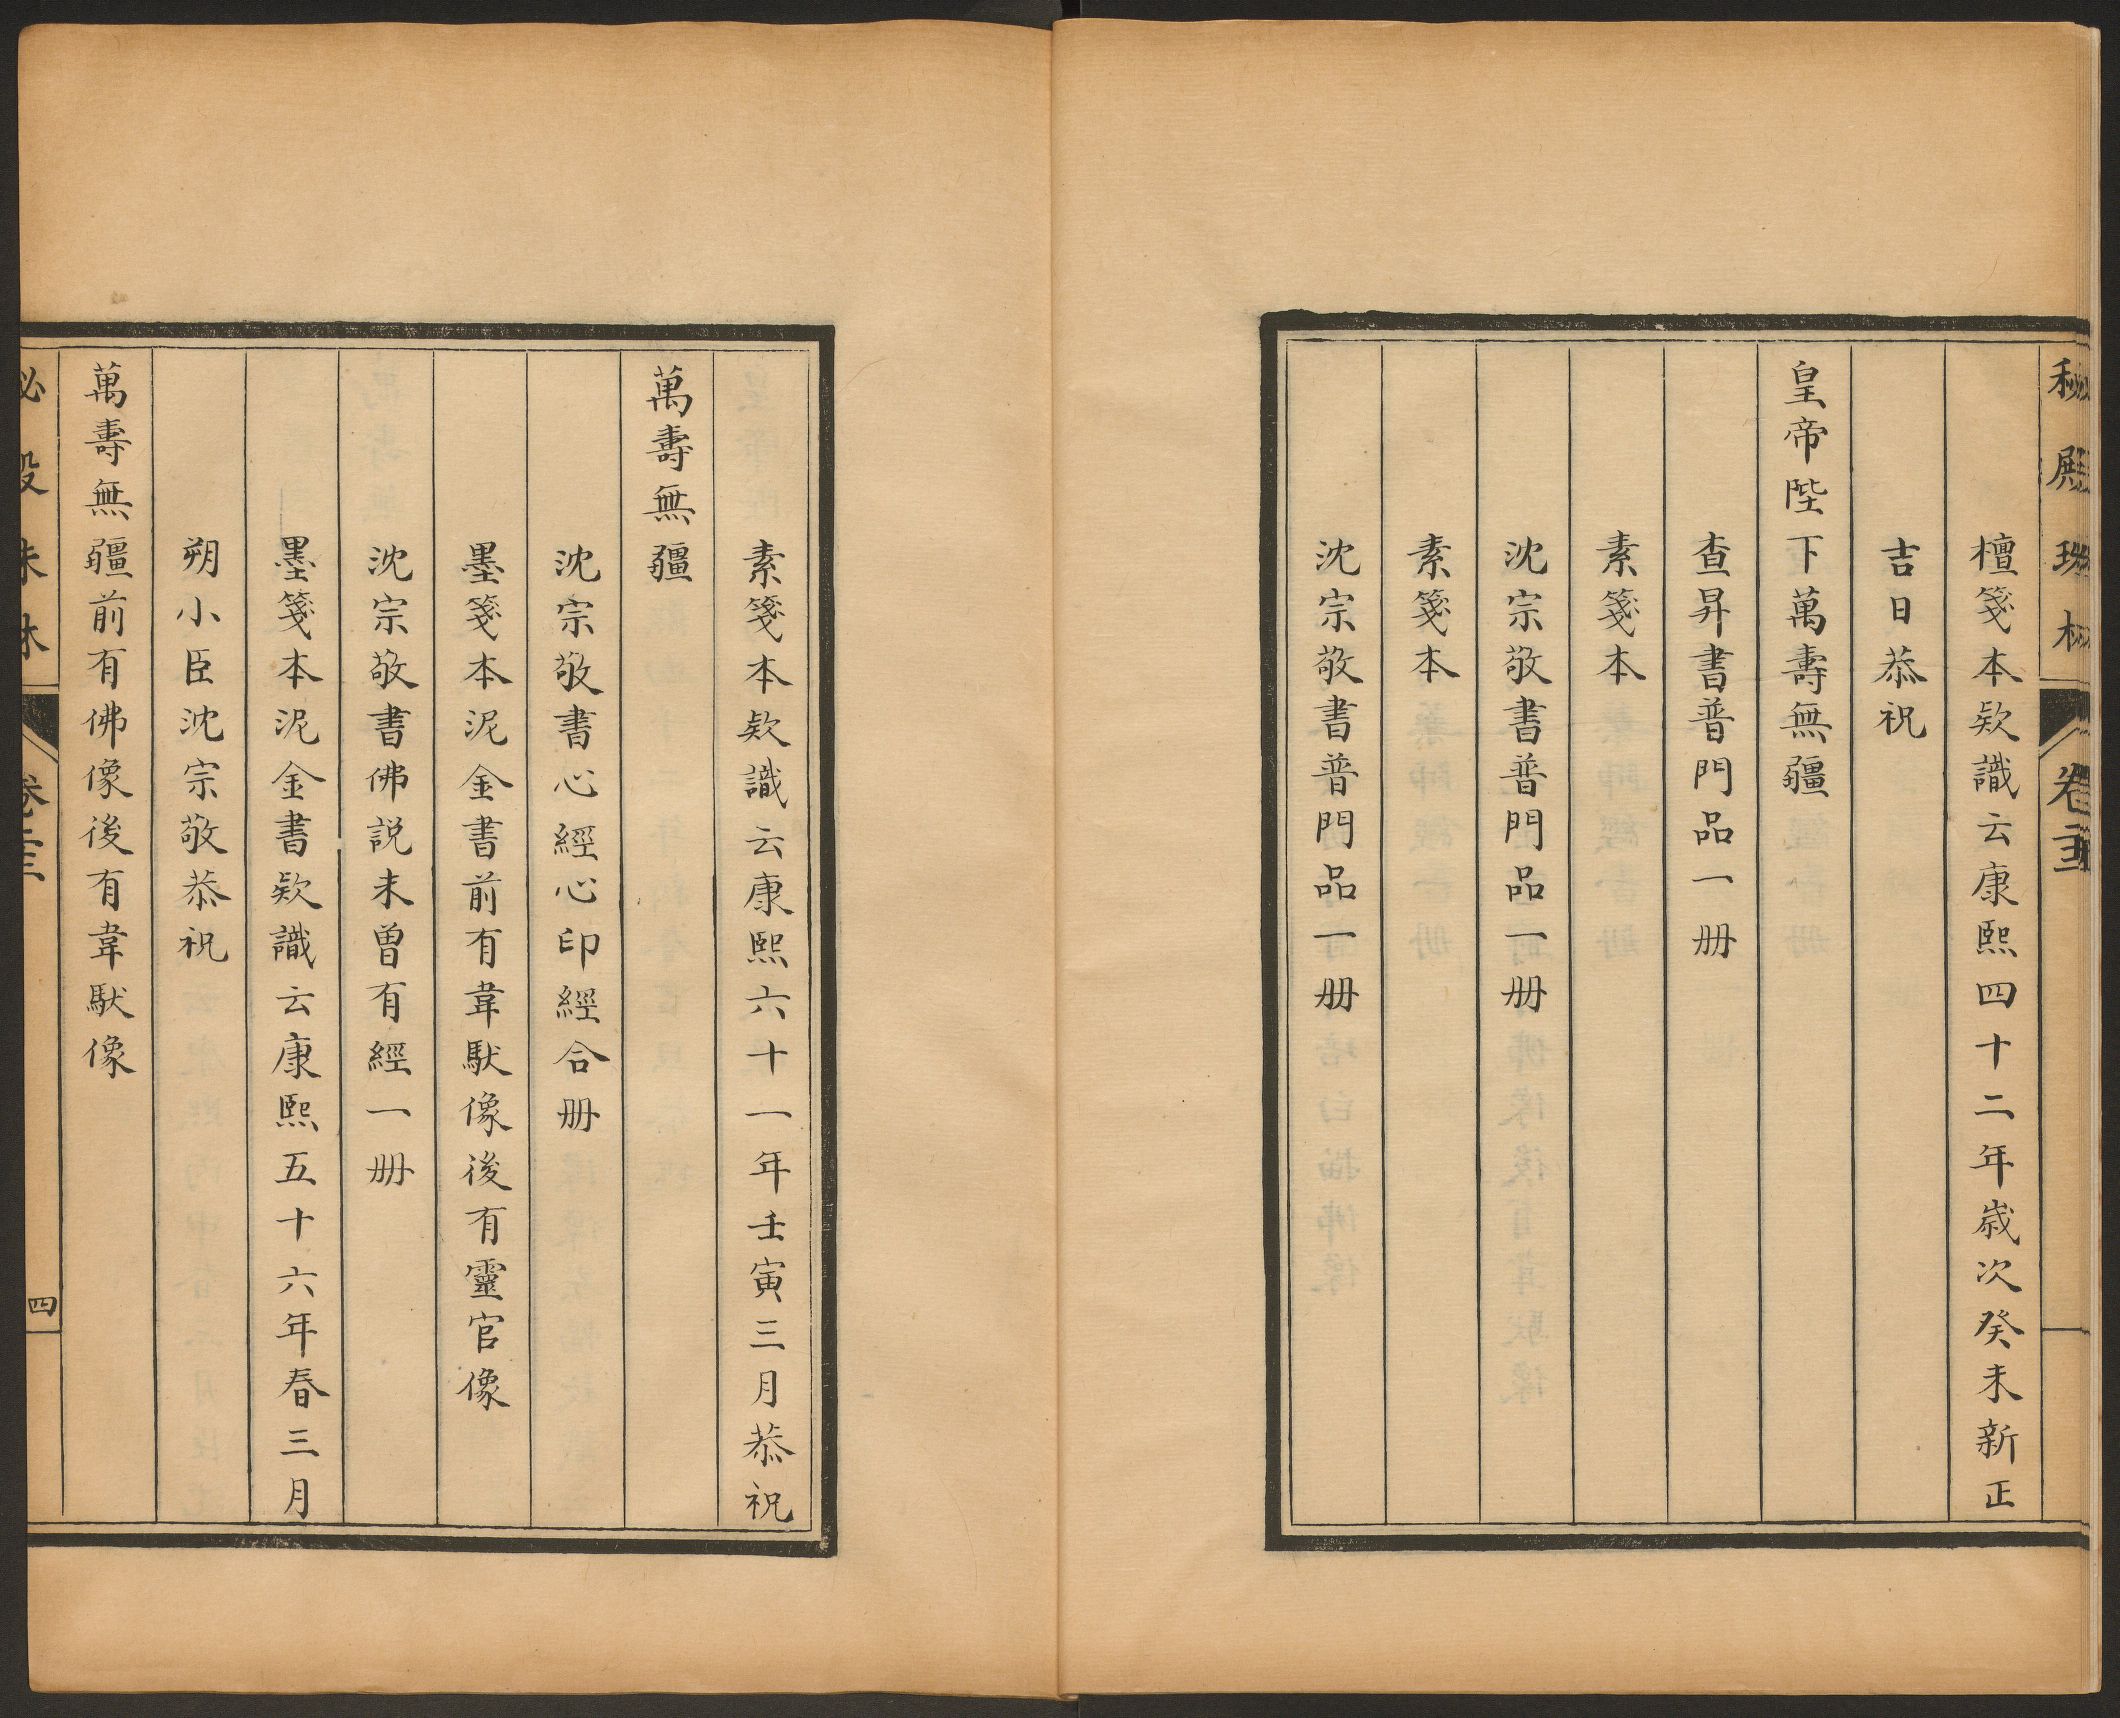 秘殿珠林 卷二十三
檀箋本欵識云康熙四十二年歲次癸未新正
吉日恭祝
皇帝陛下萬壽無疆
查昇書普門品一冊
素箋本
沈宗敬書普門品一冊
素箋本
沈宗敬書普門品一冊
素箋本欵識云康熙六十一年壬寅三月恭祝
萬壽無疆
沈宗敬書心經心印經合冊
墨箋本泥金書前有韋馱像後有靈官像
沈宗敬書佛說未曾有經一冊
墨箋本泥金書欵識云康熙五十六年春三月
朔小臣沈宗敬恭祝
萬壽無疆前有佛像後有韋馱像
秘殿珠林 卷二十三 四